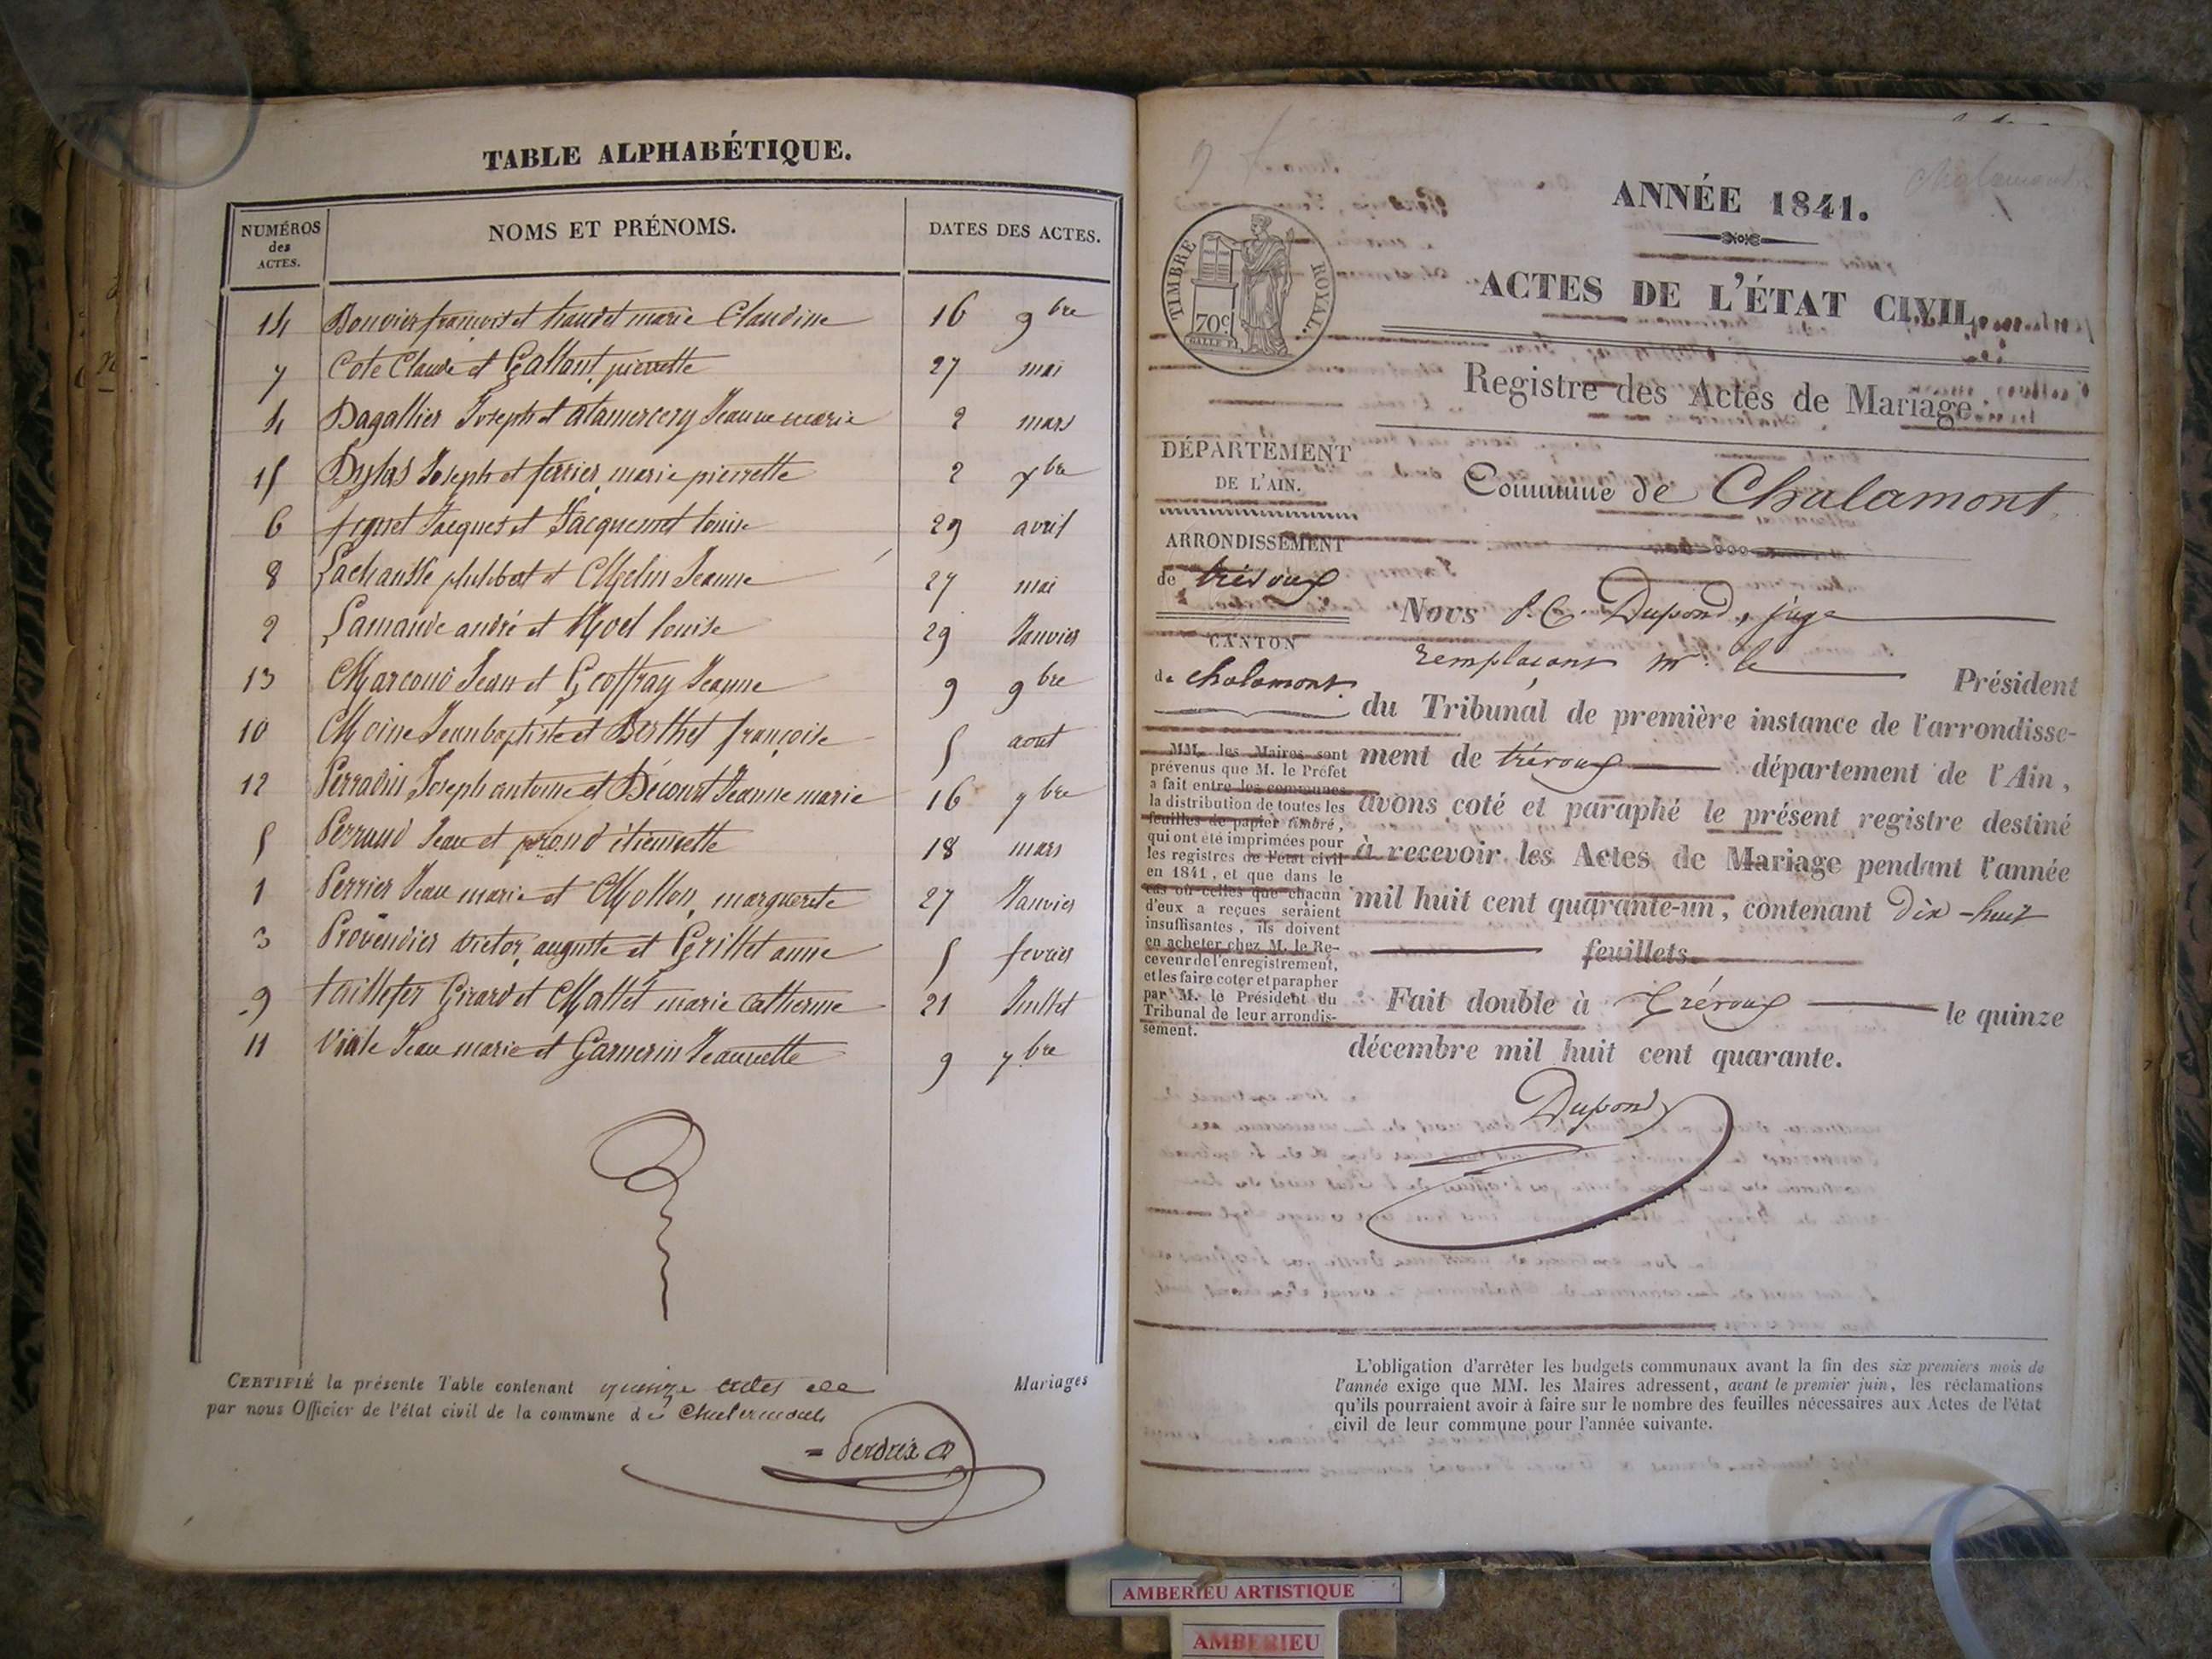 TABLE ALPHABÉTIQUE.
NUMÉROS des ACTES. NOMS ET PRÉNOMS. DATES DES ACTES.
14 Bouvier françois et marie Claudine 16 9bre
7 Cote Claude et Gallant pierrette 27 mai
4 Dagallier Joseph et Jeanne marie 2 mars
15 Joseph et ferrier marie pierrette 2 xbre
6 Jacques et Jacquemet louise 29 avril
8 Lachausse philibert et Melin Jeanne 27 mai
2 Lamande andré et louise 29 Janvier
13 Marcoud Jean et Geoffray Jeanne 9 9bre
10 Moine Jean baptiste et Berthet françoise 5 aout
12 Perradin Joseph antoine et Décourt Jeanne marie 16 7bre
5 Perraud Jean et étiennette 18 mars
1 Perrier Jean marie et Mollon marguerite 27 Janvier
3 Provendier victor auguste et Grillet anne 5 fevrier
9 taillefer Girard et Mallet marie catherine 21 Juillet
11 Viale Jean marie et Garnerin Jeannette 9 7bre
CERTIFIÉ la présente Table contenant quinze actes de Mariages
par nous Officier de l'état civil de la commune de Chalamont
= Perdrix
ANNÉE 1841.
TIMBRE ROYAL.
70c
ACTES DE L'ÉTAT CIVIL.
Registre des Actes de Mariage.
DÉPARTEMENT
DE L'AIN.
Commune de Chalamont
ARRONDISSEMENT
de trévoux
CANTON
de chalamont.
Nous J. C. Dupond, juge
remplaçant mr. le Président
du Tribunal de première instance de l'arrondisse-
ment de trévoux département de l'Ain,
avons coté et paraphé le présent registre destiné
à recevoir les Actes de Mariage pendant l'année
mil huit cent quarante-un, contenant dix-huit
feuillets.
Fait double à Trévoux le quinze
décembre mil huit cent quarante.
Dupond
MM. les Maires sont
prévenus que M. le Préfet
a fait entre les communes
la distribution de toutes les
feuilles de papier timbré,
qui ont été imprimées pour
les registres de l'état civil
en 1841, et que dans le
cas où celles que chacun
d'eux a reçues seraient
insuffisantes, ils doivent
en acheter chez M. le Re-
ceveur de l'enregistrement,
et les faire coter et parapher
par M. le Président du
Tribunal de leur arrondis-
sement.
L'obligation d'arrêter les budgets communaux avant la fin des six premiers mois de
l'année exige que MM. les Maires adressent, avant le premier juin, les réclamations
qu'ils pourraient avoir à faire sur le nombre des feuilles nécessaires aux Actes de l'état
civil de leur commune pour l'année suivante.
AMBERIEU ARTISTIQUE
AMBERIEU